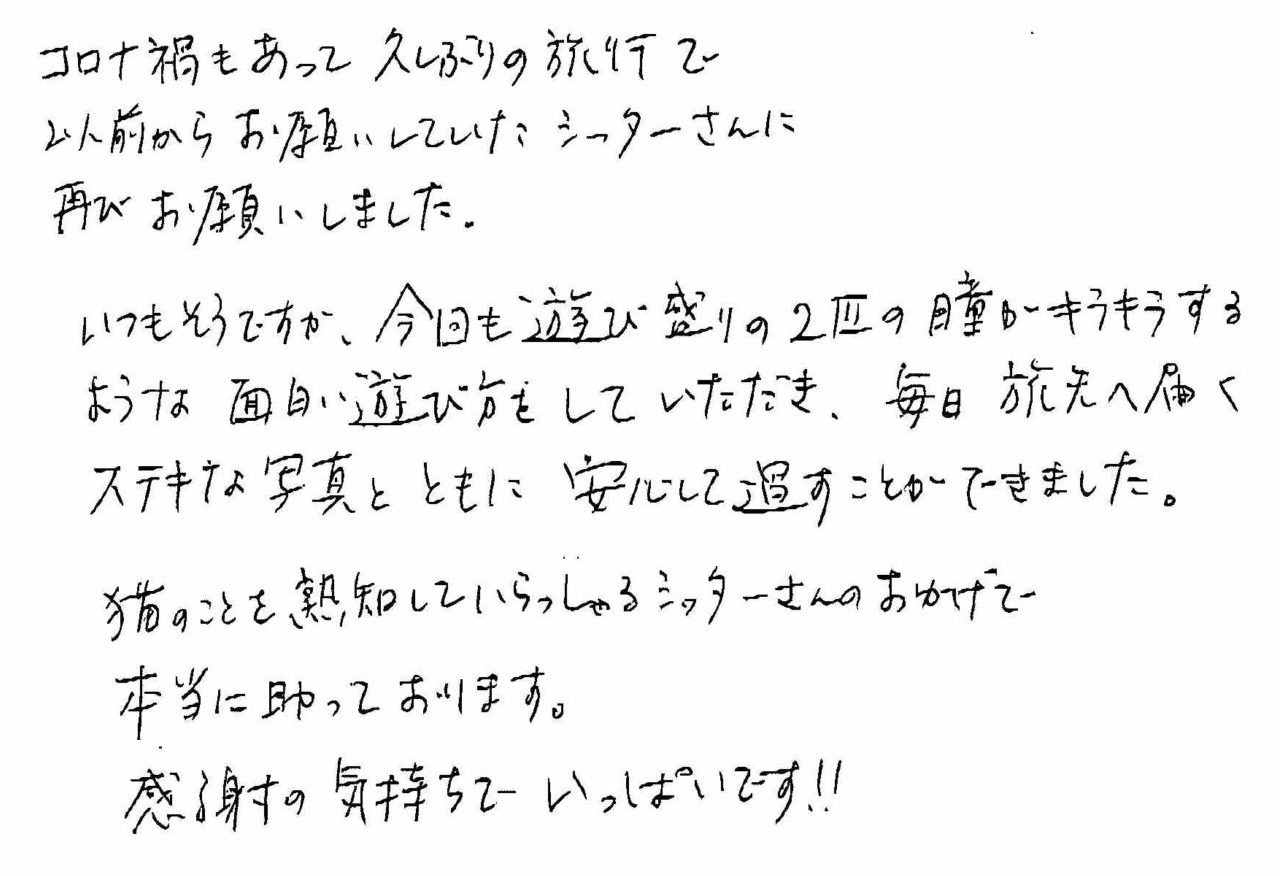 コロナ禍もあって 久しぶりの旅行で
以前からお願いしていたシッターさんに
再びお願いしました。
いつもそうですが、今回も遊び盛りの2匹の瞳がキラキラする
ような 面白い遊び方をして いただだき、毎日 旅先へ届く
ステキな写真と ともに 安心して過すことができました。
猫のことを熟知していらっしゃるシッターさんのおかげで
本当に助っております。
感謝の気持ちで いっぱいです!!